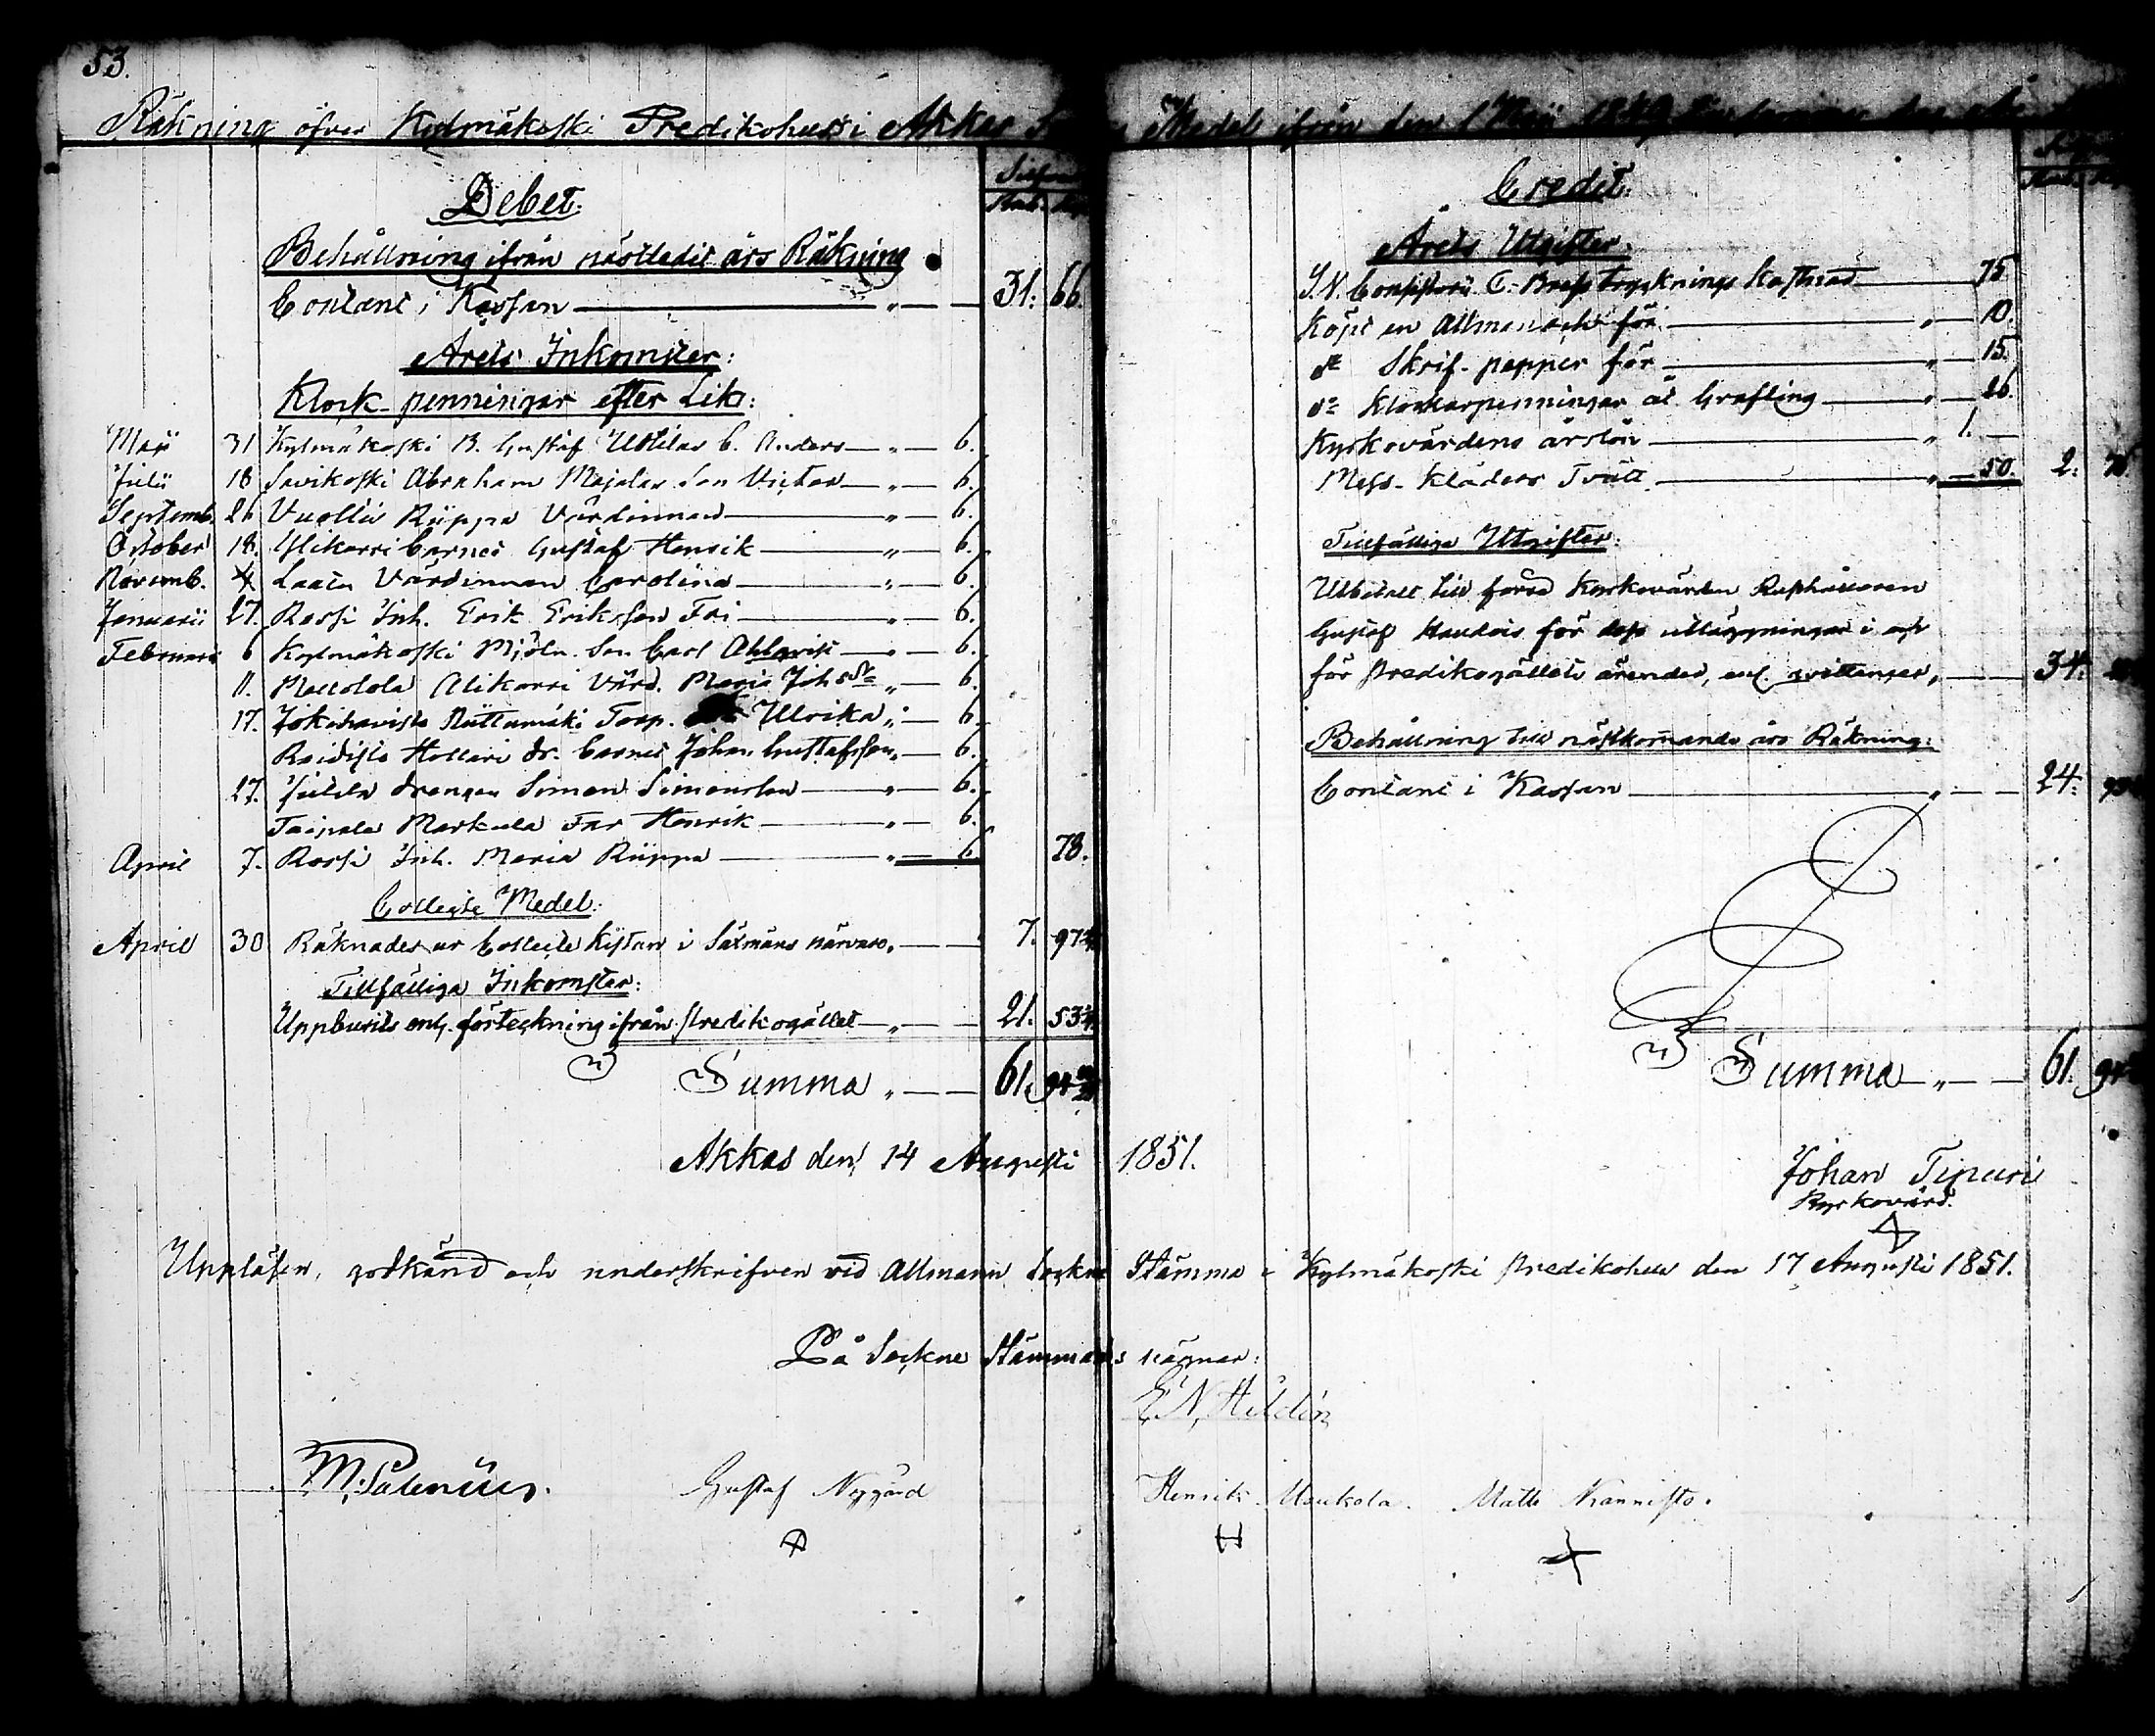 53.
Räkning öfver Kylmäkoski Predikohus i Akkas Medel ifrån den 1 Maji 1849
Debet:
Behållning ifrån nästledit års Räkning
Contant i Kassan — „ — 31: 66.
Årets Inkomster:
Klock-penningar efter Lik:
Maji 31 Kylmäkoski B. Gustaf Uttilas b. Anders — „ — 6.
Julii 18 Savikoski Abraham Majalas Son Victor — „ — 6.
Septemb. 26 Vuolliu Riippa Värdinnan — „ — 6.
October 18. Ylikarri barnet Gustaf Henrik — „ — 6.
Novemb. 4 Laain Värdinnan Carolina — „ — 6.
Januarii 27. Rossi Inh. Erik Eriksson Fri — „ — 6.
Februari 6 Kylmäkoski Mjöln. Son Carl Ahlqvist — „ — 6.
11. Mattolola Alikarri Värd. Maria Johsdr „ — 6.
17. Jokihavisto Niittumäki Torp. Ulrika „ — 6.
Raidisto Hollari dr. barnet Johan Gustafsson „ — 6.
27. Juttila drengen Simon Simonsson — „ — 6.
Taipale Markula Far Henrik — „ — 6.
April 7. Rossi Inh. Maria Riippa — „ — 6. 78.
Collegte Medel:
April 30 Räknades ur Collecte Kistan i Sexmäns närvaro, — 7. 97
Tillfälliga Inkomster:
Uppburits enl. förteckning ifrån predikogället — „ — 21. 53
Summa „ — 61. 94
Credit:
Årets Utgifter:
T. Brefs trycknings Kostnad — 75
Köpt en Allmanach för — „ — 10.
do Skrif-papper för — „ — 15.
do Klockarpenningar åt Grafling — „ — 26.
Kyrkovärdens årslön — „ 1. —
Mess-Kläders Tvätt — „ — 50. 2: 76
Tillfälliga Utgifter:
Utbetalt till förra Kyrkovärden Rusthållaren
Gustaf för dess utläggningar i och
för predikogällets ärender, enl. qvittenser, — 34:
Behållning till nästkommande års Räkning:
Contant i Kassan — „ — 24:
Summa — „ — 61. 94
Akkas den 14 Augusti 1851.
Johan Tipuri
Kyrkovärd.
Uppläsen, godkänd och underskrifven vid Allmänn Sockne Stämma i Kylmäkoski predikohus den 17 Augusti 1851.
På Sockne Stämmans vägnar:
E. N. Hildén
M. Salenius. Gustaf Nygård Henrik Uoukola. Matts Kannisto.